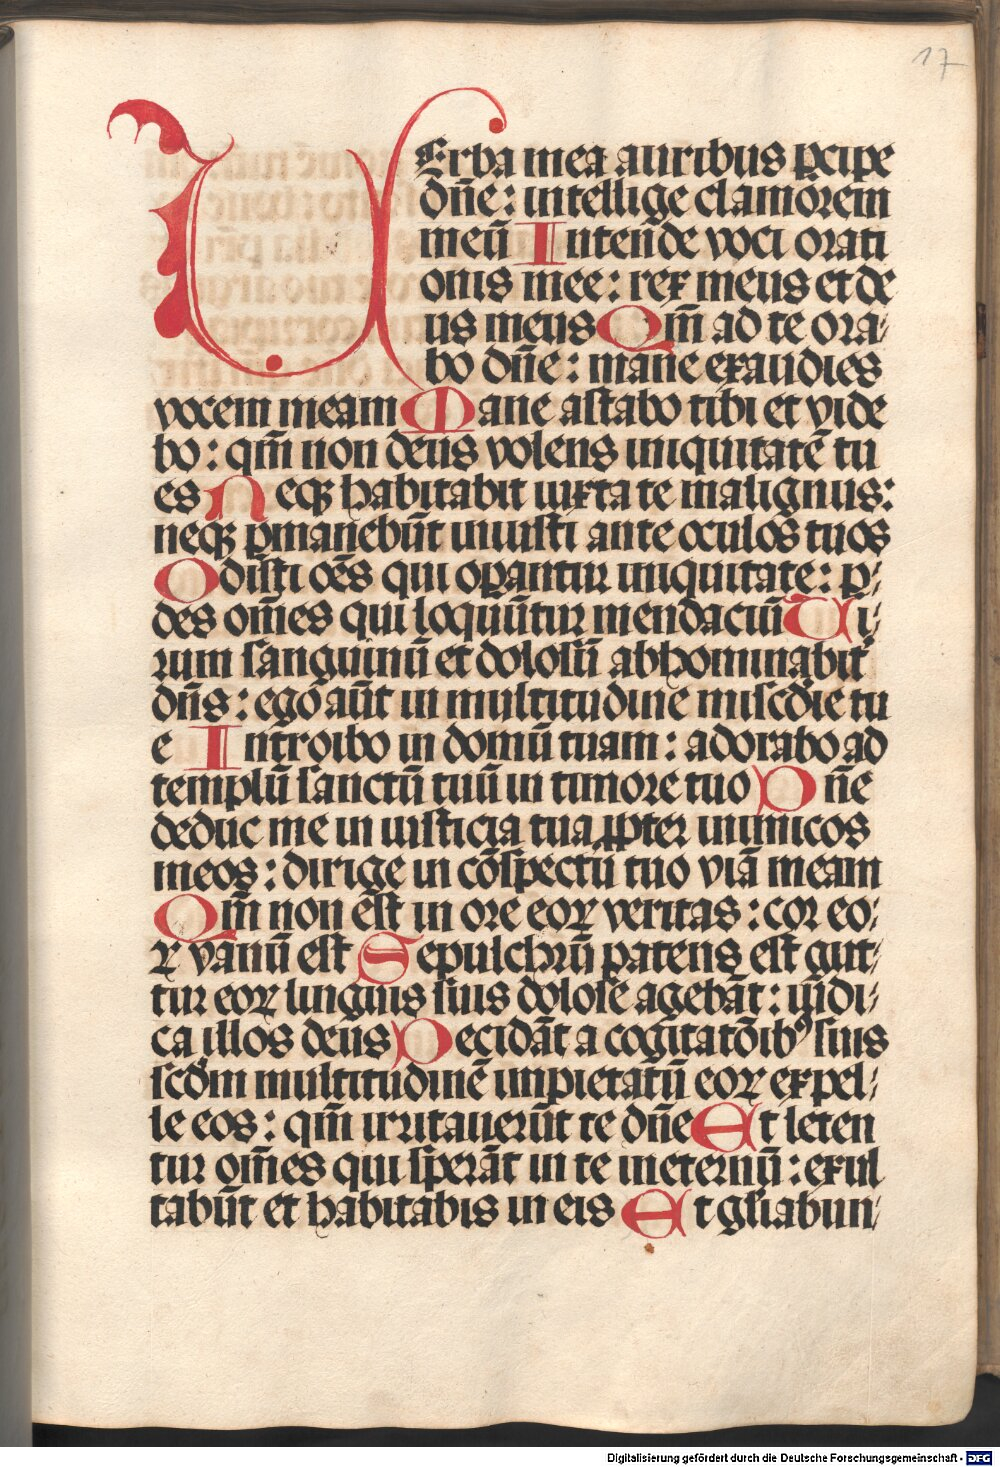 17
VErba mea auribus ꝑcipe
dn̄e : intellige clamorem
meū Intende voci orati
onis mee : rex meus et de
us meus Qm̄ ad te ora⸗
bo dn̄e : mane exaudies
vocem meam Mane astabo tibi et vide
bo : qm̄ non deus volens iniquitatē tu
es Neqꝫ habitabit iuxta te malignus :
neqꝫ ꝑmanebūt iniusti ante oculos tuos
Odisti oēs qui oꝑantur iniquitate : ꝑ⸗
des om̄es qui loquūtur mendaciū Ui⸗
rum sanguinū et dolosū abhominabit᷑
dn̄s : ego aūt in multitudine misc̄die tu
e Introibo in domū tuam : adorabo ad
templū sanctū tuū in timore tuo Dn̄e
deduc me in iusticia tua ꝓpter inimicos
meos : dirige in cōspectu tuo viā meam
Qm̄ non est in ore eoꝝ veritas : cor eo⸗
ꝝ vanū est Sepulchrū patens est gut⸗
tur eoꝝ linguis suis dolose agebāt : iudi⸗
ca illos deus Decidāt a cogitatōibꝰ suis
scd̄m multitudinē impietatū eoꝝ expel⸗
le eos : qm̄ irritauerūt te dn̄e Et leten
tur om̄es qui sperāt in te ineternū : exul
tabūt et habitabis in eis Et gl̄iabun⸗
Digitalisierung gefördert durch die Deutsche Forschungsgemeinschaft - DFG